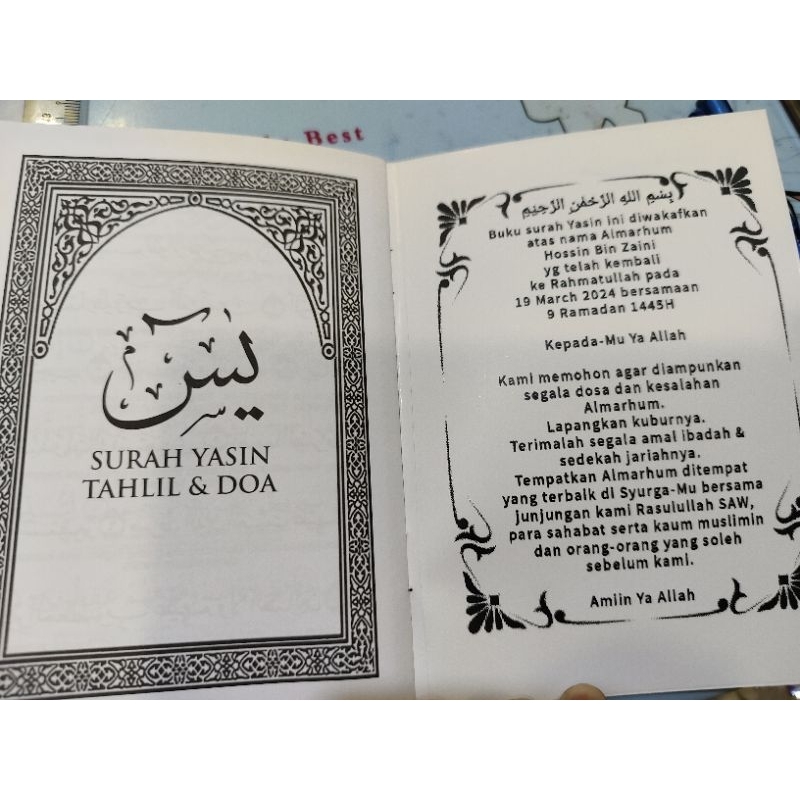 Best
يس
SURAH YASIN
TAHLIL & DOA
بِسْمِ اللهِ الرَّحْمٰنِ الرَّحِيْمِ
Buku surah Yasin ini diwakafkan
atas nama Almarhum
Hossin Bin Zaini
yg telah kembali
ke Rahmatullah pada
19 March 2024 bersamaan
9 Ramadan 1445H
Kepada-Mu Ya Allah
Kami memohon agar diampunkan
segala dosa dan kesalahan
Almarhum.
Lapangkan kuburnya.
Terimalah segala amal ibadah &
sedekah jariahnya.
Tempatkan Almarhum ditempat
yang terbaik di Syurga-Mu bersama
junjungan kami Rasulullah SAW,
para sahabat serta kaum muslimin
dan orang-orang yang soleh
sebelum kami.
Amiin Ya Allah